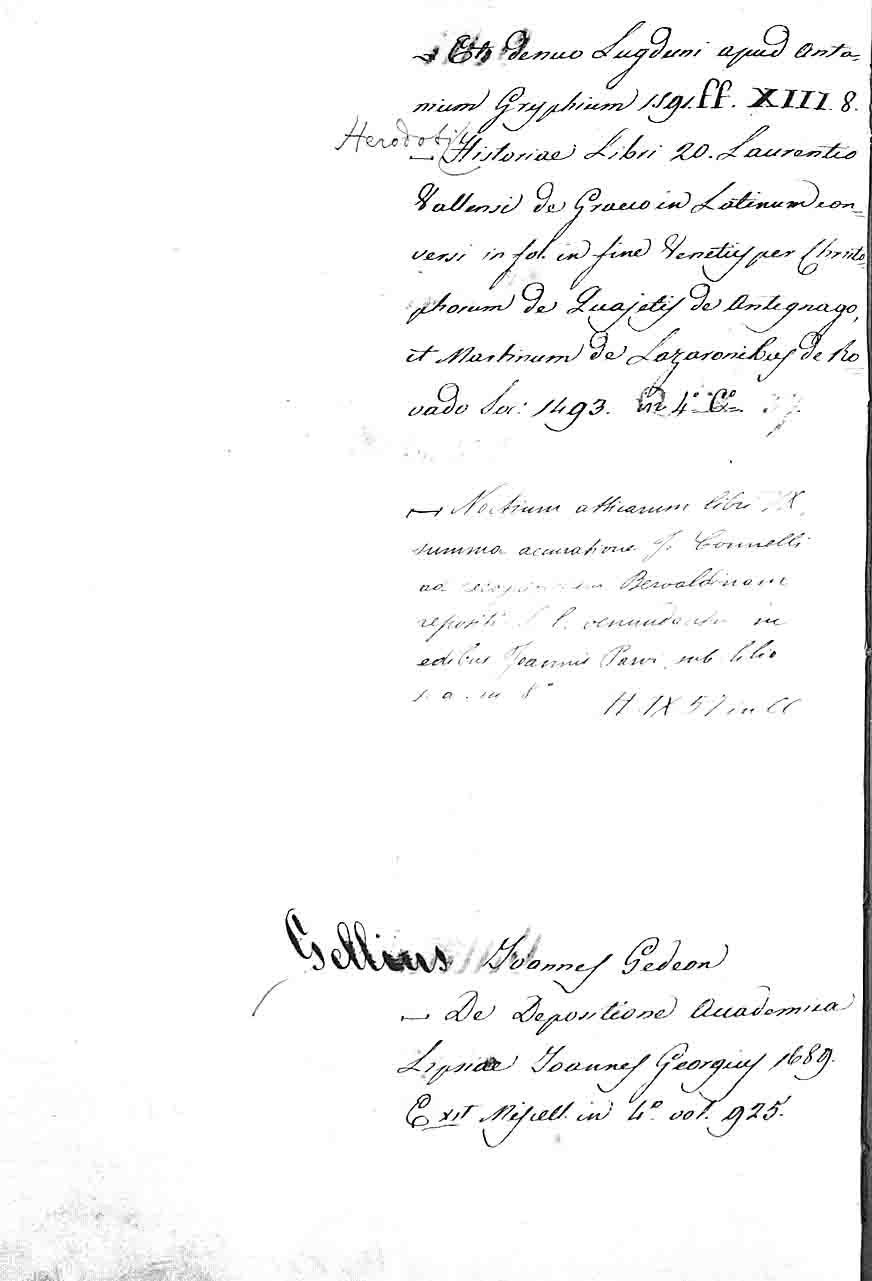 — Et denuo Lugduni apud Anto-
nium Gryphium 1591. ff. XIII. 8.
Herodoti
— Historiae Libri 20. Laurentio
Vallensi de Graeco in Latinum con=
versi in fol. in fine Venetiis per Christo=
phorum de Quajetis de Antegnago,
et Martinum de Lazaronibus de Ro
vado Soc: 1493. in 4° C°
— Noctium atticarum libri
summa accuratione J. Connelli
ad Beroaldinam
repositi venundantur in
edibus Joannis Parvi sub lilio
s. a. in 8°
H IX 57 in CC
Gellius Joannes Gedeon
— De Depositione Academica
Lipsiae Joannes Georgius 1689.
Exit Miscell. in 4° vol. 925.